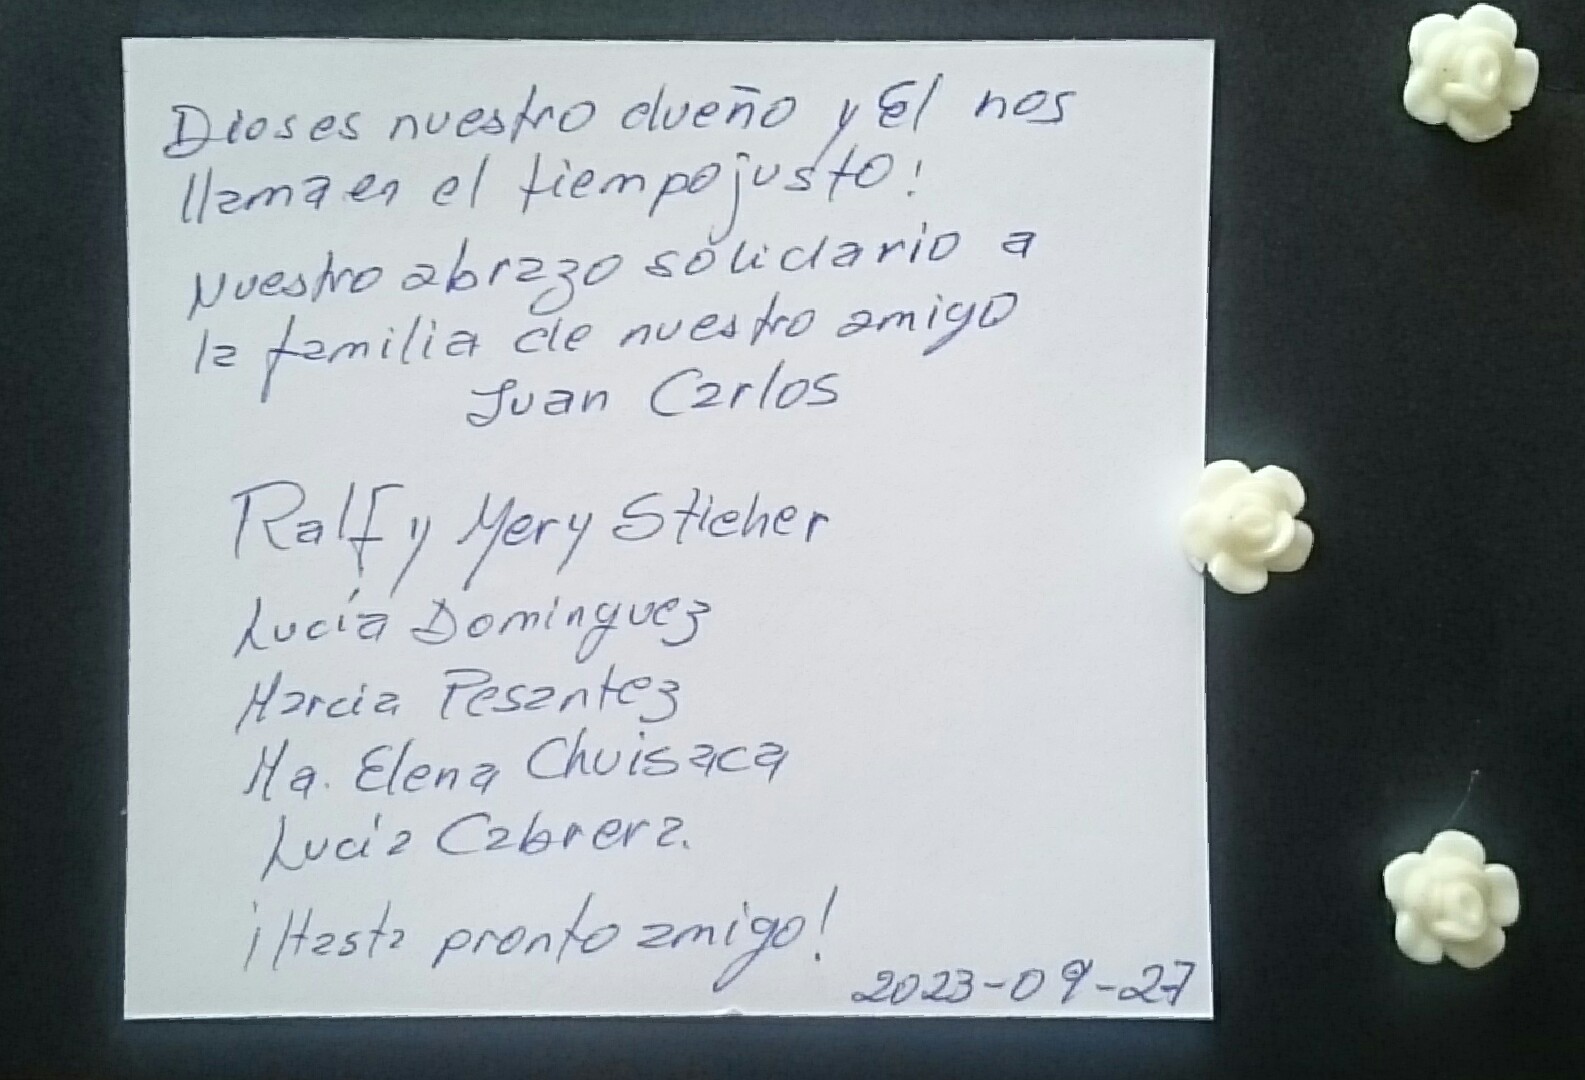 Dios es nuestro dueño y Él nos
llama en el tiempo justo!
Nuestro abrazo solidario a
la familia de nuestro amigo
Juan Carlos
Ralf y Mery Stieher
Lucía Dominguez
Marcia Pesantez
Ma. Elena Chuisaca
Lucía Cabrera.
¡Hasta pronto amigo!
2023-09-27